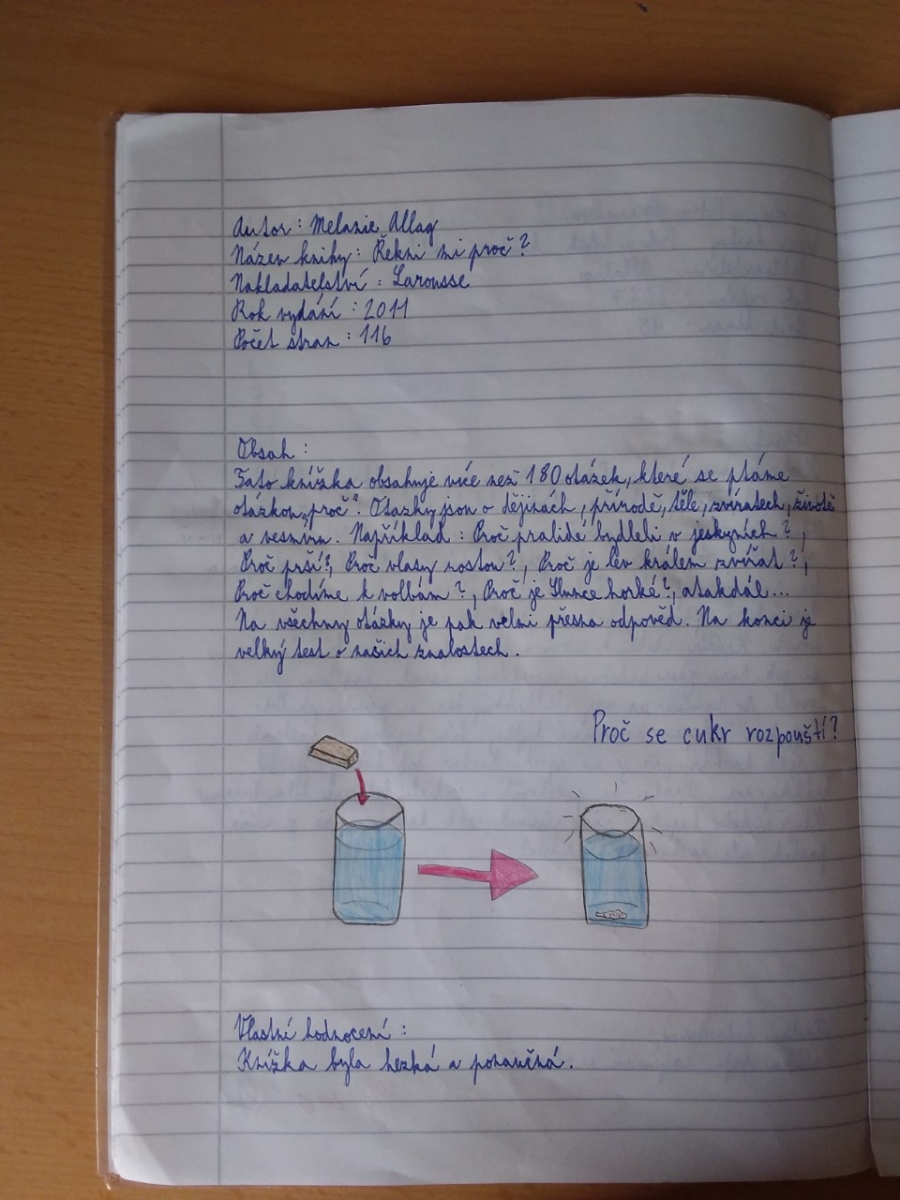 Autor : Melanie Allag
Název knihy : Řekni mi proč ?
Nakladatelství : Larousse
Rok vydání : 2011
Počet stran : 116
Obsah :
Tato knížka obsahuje více než 180 otázek, které se ptáme
otázkou „proč“. Otazky jsou o dějinách, přírodě, těle, zvířatech, životě
a vesmíru. Například : Proč pralidé bydleli v jeskyních ? ,
Proč prší?, Proč vlasy rostou?, Proč je lev králem zvířat ?,
Proč chodíme k volbám ?, Proč je Slunce horké?, atakdál...
Na všechny otázky je pak velmi přesna odpověd. Na konci je
velký test o našich znalostech.
Proč se cukr rozpouští?
Vlastní hodnocení :
Knížka byla hezká a poraučná.